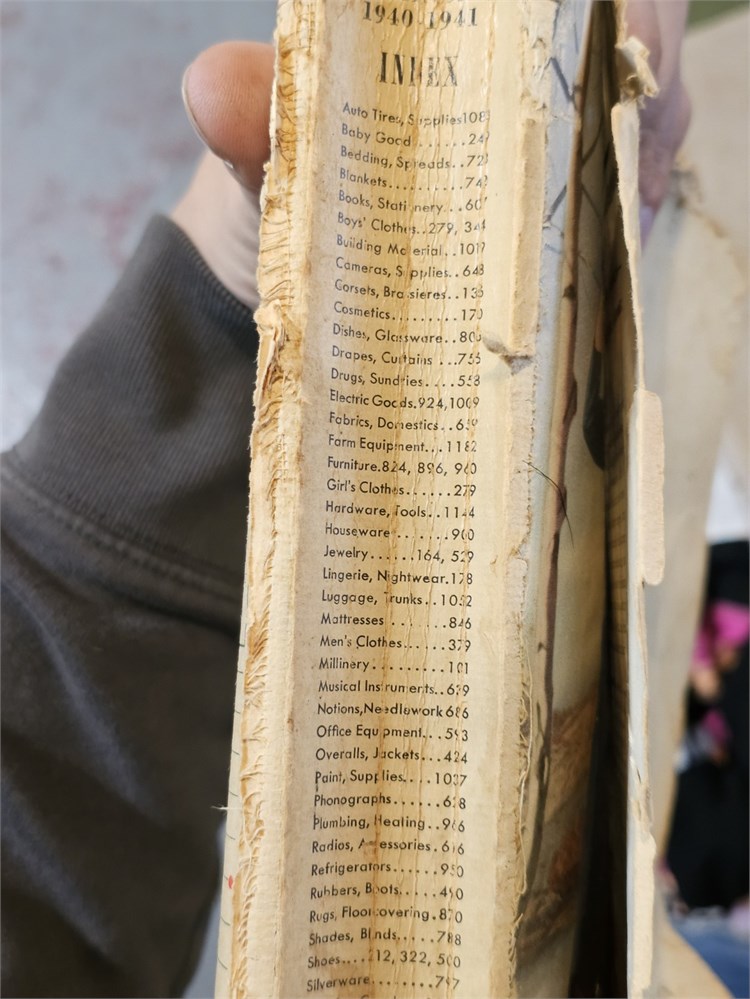 1940-1941
INDEX
Auto Tires, Supplies 108
Baby Good.......24
Bedding, Spreads..72
Blankets..........74
Books, Stationery...60
Boys' Clothes..279, 344
Building Material..101
Cameras, Supplies..648
Corsets, Brassieres..13
Cosmetics.........17
Dishes, Glassware..80
Drapes, Curtains ...755
Drugs, Sundries....558
Electric Goods.924,1009
Fabrics, Domestics..6
Farm Equipment...1182
Furniture.824, 896, 960
Girl's Clothes......279
Hardware, Tools..1144
Houseware.......900
Jewelry......164, 529
Lingerie, Nightwear.178
Luggage, Trunks..1052
Mattresses.......846
Men's Clothes......379
Millinery.........101
Musical Instruments..6
Notions,Needlework 686
Office Equipment...593
Overalls, Jackets...424
Paint, Supplies....1037
Phonographs......6
Plumbing, Heating..966
Radios, Accessories.616
Refrigerators......950
Rubbers, Boots.....490
Rugs, Floorcovering.870
Shades, Blinds.....788
Shoes....212, 322, 500
Silverware......797